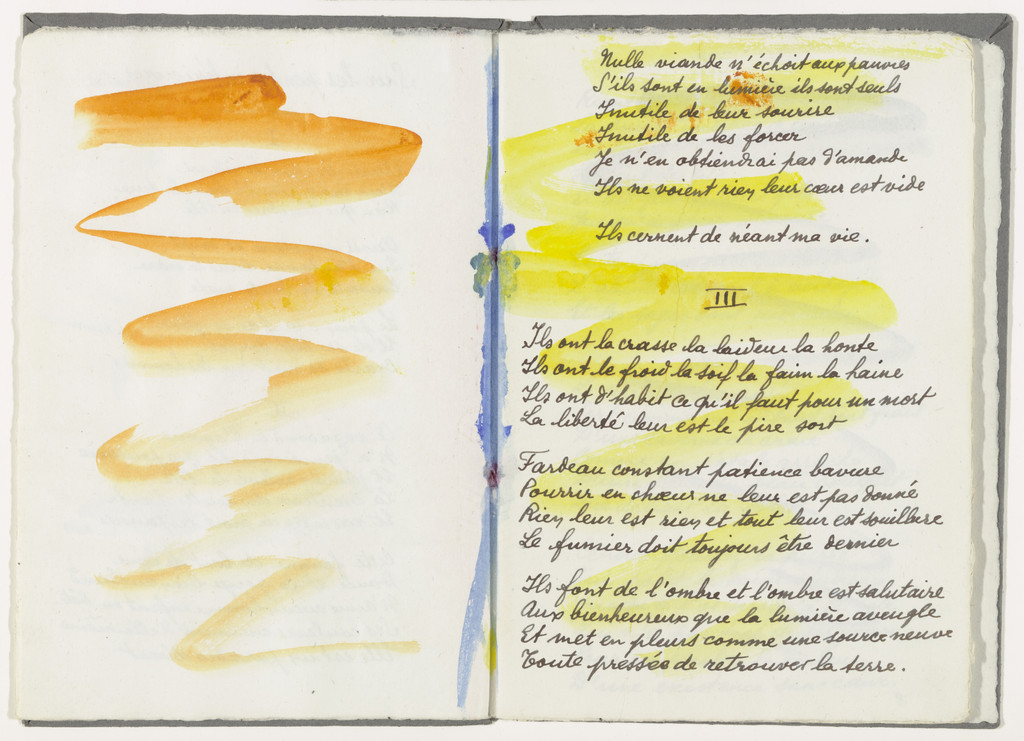 Nulle viande n'échoit aux pauvres
S'ils sont en lumière ils sont seuls
Inutile de leur sourire
Inutile de les forcer
Je n'en obtiendrai pas d'amande
Ils ne voient rien leur cœur est vide
Ils cernent de néant ma vie.
III
Ils ont la crasse la laideur la honte
Ils ont le froid la soif la faim la haine
Ils ont d'habit ce qu'il faut pour un mort
La liberté leur est le pire sort
Fardeau constant patience bavure
Pourrir en chœur ne leur est pas donné
Rien leur est rien et tout leur est souillure
Le fumier doit toujours être dernier
Ils font de l'ombre et l'ombre est salutaire
Aux bienheureux que la lumière aveugle
Et met en pleurs comme une source neuve
Toute pressée de retrouver la terre.